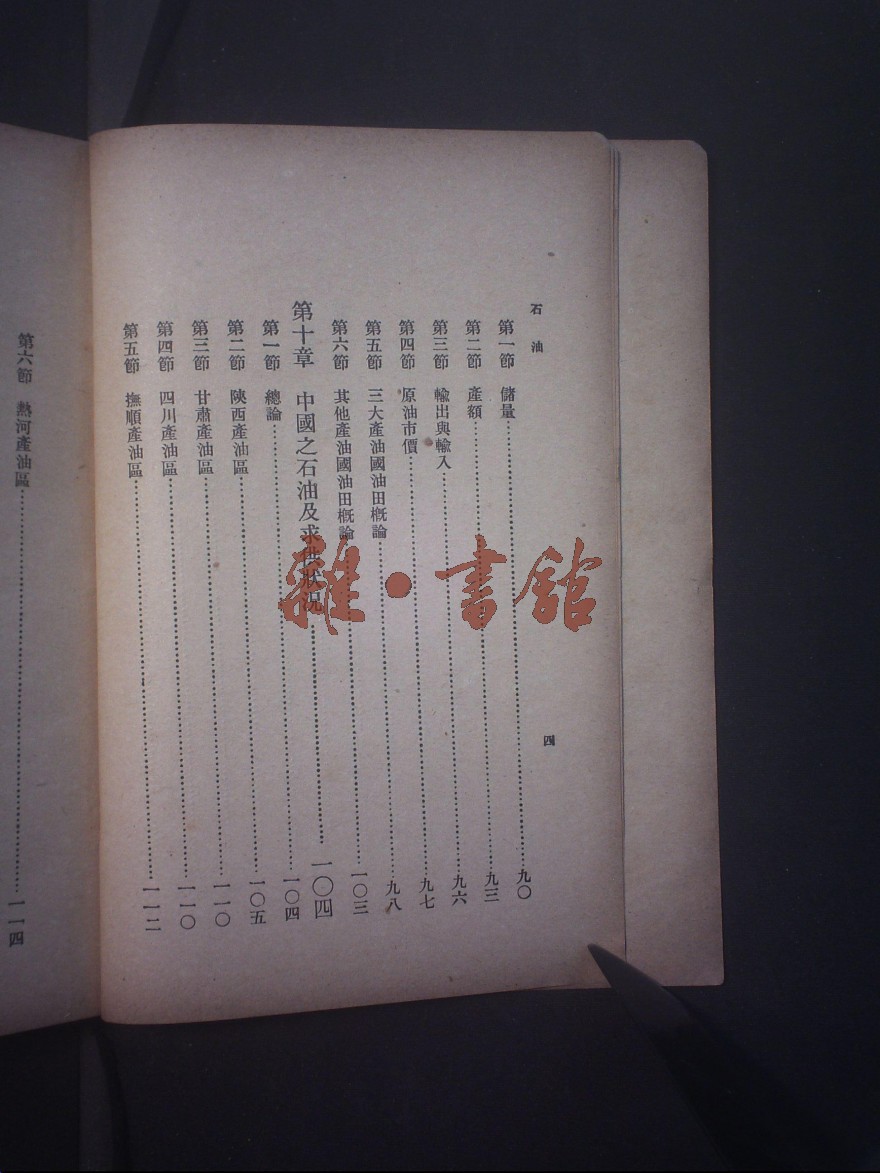 石油
四
第一節 儲量……九〇
第二節 產額……九三
第三節 輸出與輸入……九六
第四節 原油市價……九七
第五節 三大產油國油田概論……九八
第六節 其他產油國油田概論……一〇三
第十章 中國之石油及求供狀況……一〇四
第一節 總論……一〇四
第二節 陝西產油區……一〇五
第三節 甘肅產油區……一一〇
第四節 四川產油區……一一〇
第五節 撫順產油區……一一二
第六節 熱河產油區……一一四
雜·書館